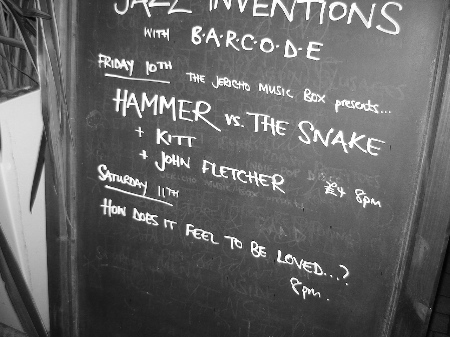 JAZZ INVENTIONS
WITH B·A·R·C·O·D·E
FRIDAY 10TH
THE JERICHO MUSIC BOX presents...
HAMMER vs. THE SNAKE
+ KITT
+ JOHN FLETCHER £4 8pm
SATURDAY 11TH
HOW DOES IT FEEL TO BE LOVED...?
8pm.